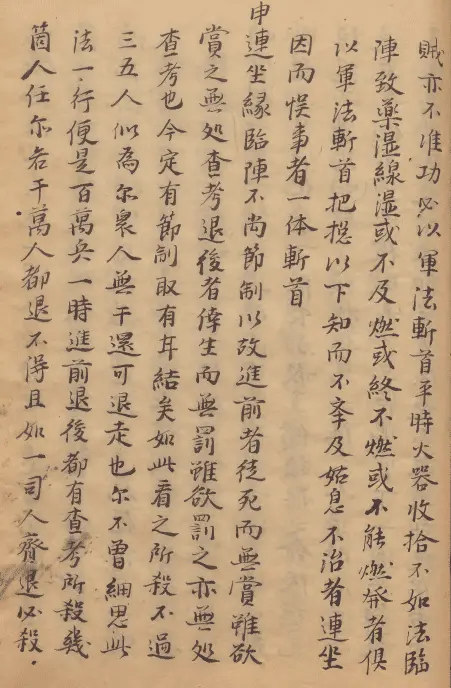 賊亦不准功必以軍法斬首平時火器收拾不如法臨
陣致藥湿線湿或不及燃或終不燃或不能燃發者俱
以軍法斬首把捴以下知而不举及姑息不治者連坐
因而悮事者一体斬首
申連坐緣臨陣不尚節制以故進前者徒死而無賞雖欲
賞之無処查考退後者倖生而無罰雖欲罰之亦無処
查考也今定有節制取有耳結矣如此看之所殺不過
三五人似為尔衆人無干還可退走也尔不曾細思此
法一行便是百萬兵一時進前退後都有查考所殺幾
箇人任尔若干萬人都退不得且如一司人齊退必殺